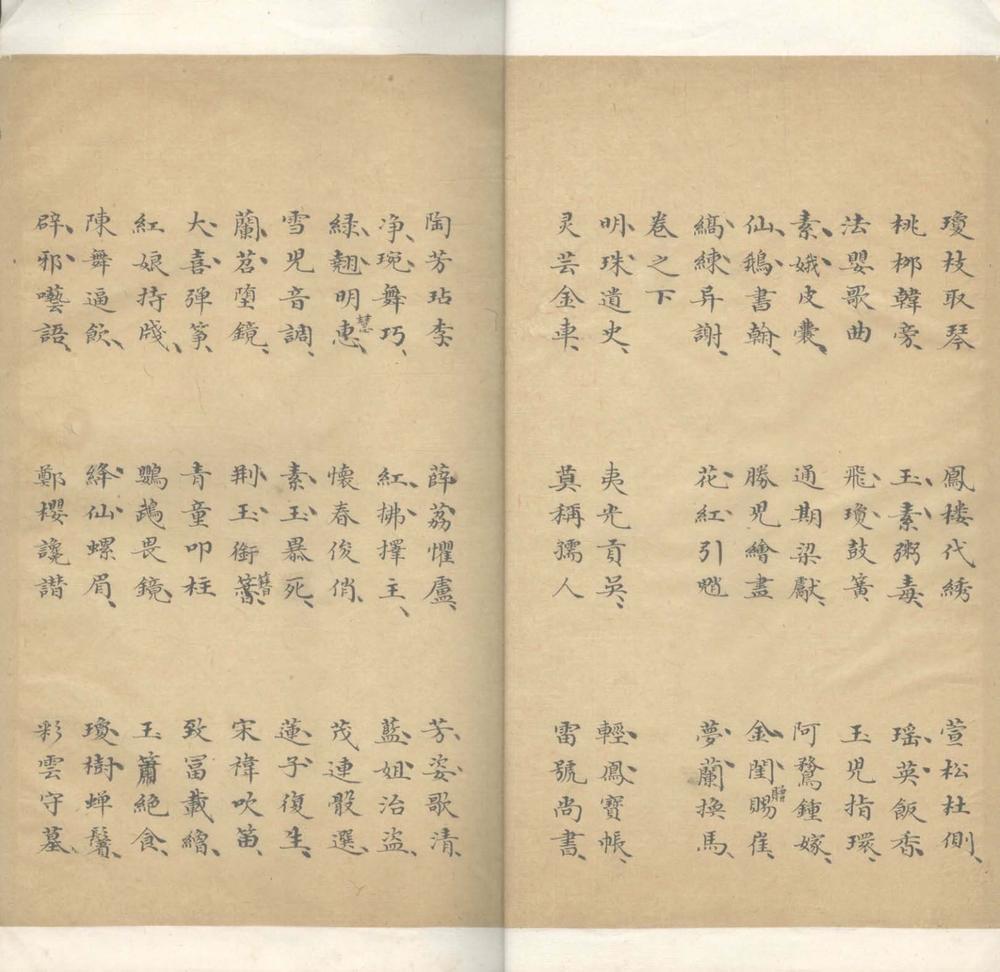 瓊枝取琴 鳳楼代綉 萱松杜側
桃栁韓旁 玉素粥毒 瑶英飯香
法嬰歌曲 飛瓊鼓簧 玉児指環
素娥皮裘 通期梁獻 阿鶩鍾嫁
仙鵝書翰 勝児繪畫 金閨賜贈崔
縞練异謝 花紅引 夢蘭換馬
卷之下
明珠遺史 夷光貢吳 輕鳳寶帳
灵芸金車 莫稱孺人 雷號尚書
陶芳玷李 薛荔懼盧 芳姿歌清
净琬舞巧 紅拂擇主 藍姐治盗
緑翹明惠慧 懷春俊俏 茂連骰選
雪児音調 素玉暴死 蓮子復生
蘭苕墮鏡 荆玉銜簪 宋褘吹笛
大喜弹筝 青童叩柱 致冨載繒
紅娘持牋 鸚鵡畏鏡 玉簫絶食
陳舞逼飲 絳仙螺眉 瓊樹蝉鬢
辟邪囈語 鄭櫻讒譖 彩雲守墓